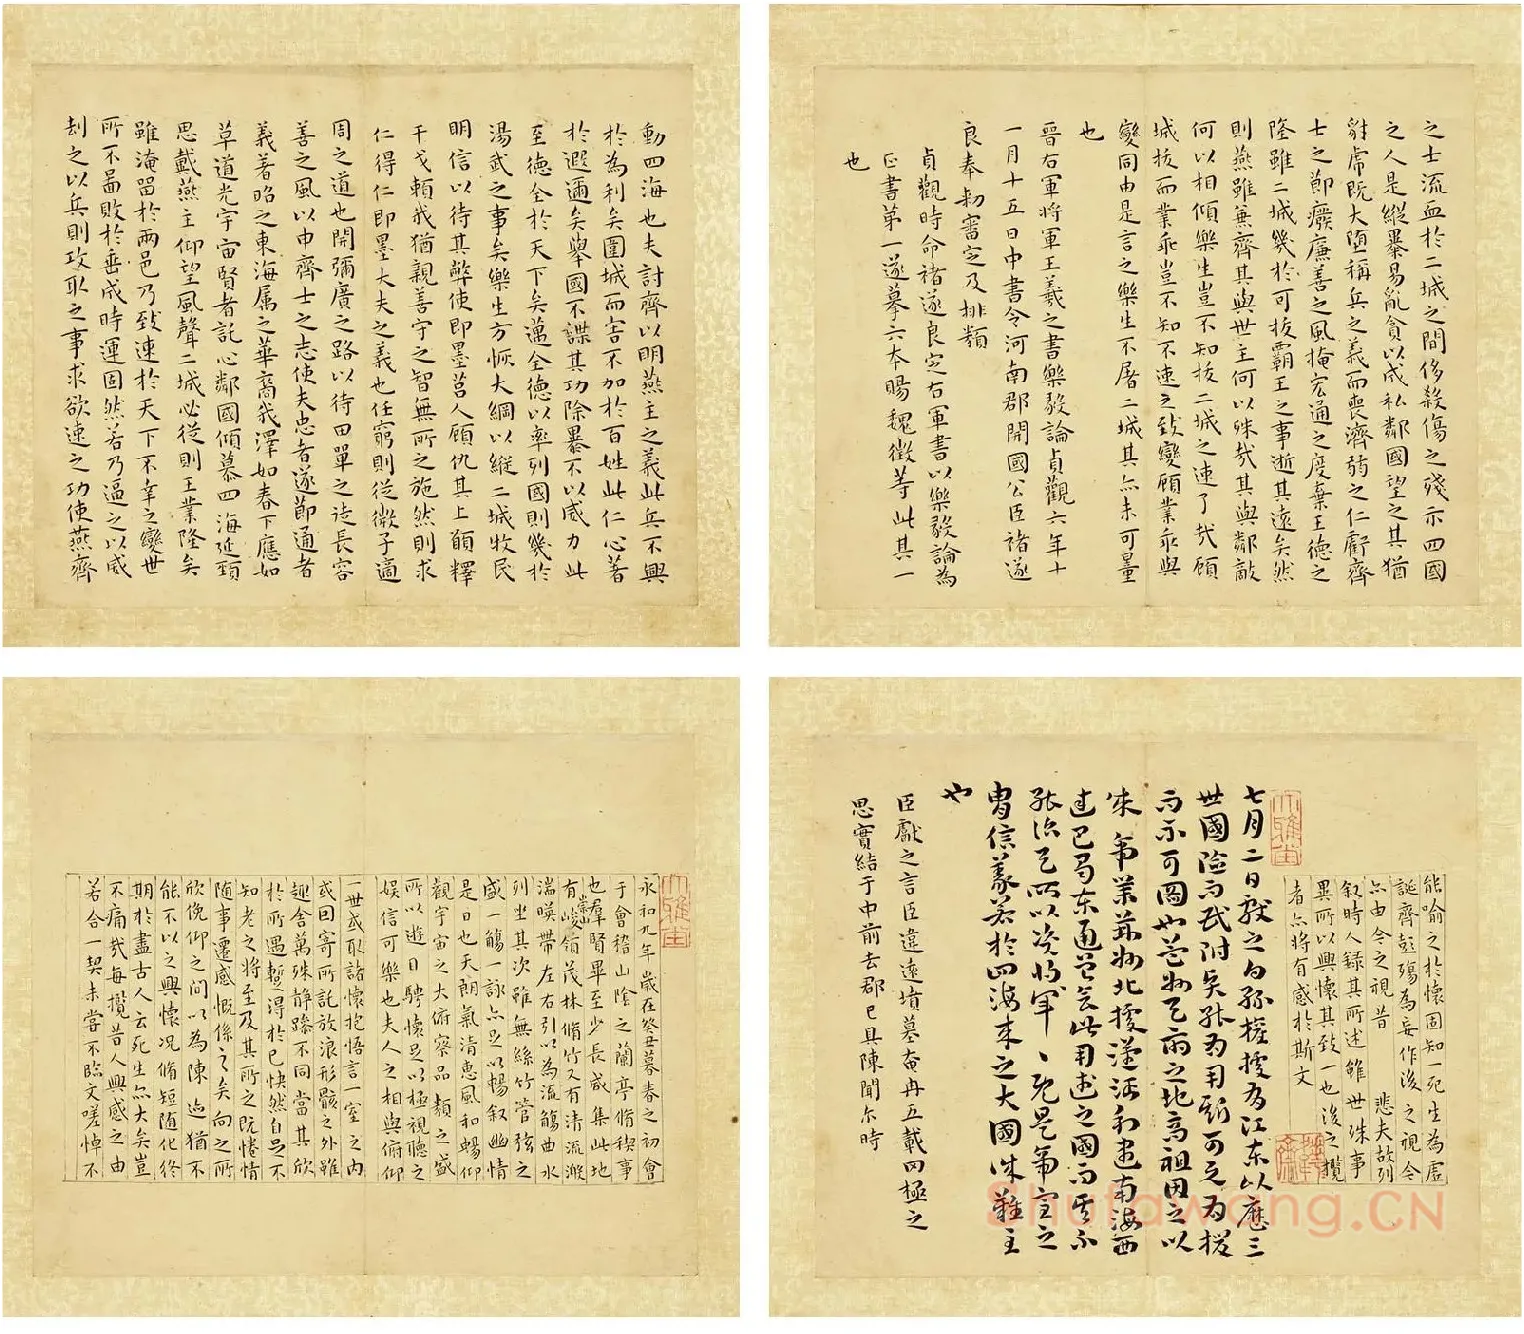 動四海也夫討齊以明燕主之義此兵不興
於為利矣圍城而害不加於百姓此仁心著
於遐邇矣舉國不謀其功除暴不以威力此
至德全於天下矣邁全德以率列國則幾於
湯武之事矣樂生方恢大綱以縱二城牧民
明信以待其弊使即墨莒人顧仇其上願釋
干戈賴我猶親善守之智無所之施然則求
仁得仁即墨大夫之義也任窮則從微子適
周之道也開彌廣之路以待田單之徒長容
善之風以申齊士之志使夫忠者遂節通者
義著昭之東海属之華裔我澤如春下應如
草道光宇宙賢者託心鄰國傾慕四海延頸
思戴燕主仰望風聲二城必從則王業隆矣
雖淹留於兩邑乃致速於天下不幸之變世
所不圖敗於垂成時運固然若乃逼之以威
刦之以兵則攻取之事求欲速之功使燕齊
之士流血於二城之間侈殺傷之殘示四國
之人是縱暴易亂貪以成私鄰國望之其猶
豺虎既大墮稱兵之義而喪濟弱之仁虧齊
士之節癈廉善之風掩宏通之度棄王德之
隆雖二城幾於可拔霸王之事逝其遠矣然
則燕雖兼齊其與世主何以殊哉其與鄰敵
何以相傾樂生豈不知拔二城之速了哉顧
城拔而業乖豈不知不速之致變顧業乖與
變同由是言之樂生不屠二城其亦未可量
也
晉右軍將軍王羲之書樂毅論貞觀六年十
一月十五日中書令河南郡開國公臣褚遂
良奉勑審定及排類
貞觀時命褚遂良定右軍書以樂毅論為
正書第一遂摹六本賜魏徵等此其一
也
永和九年歲在癸丑暮春之初會
于會稽山陰之蘭亭脩稧事
也羣賢畢至少長咸集此地
有崇山峻領茂林脩竹又有清流激
湍暎帶左右引以為流觴曲水
列坐其次雖無絲竹管弦之
盛一觴一詠亦足以暢叙幽情
是日也天朗氣清惠風和暢仰
觀宇宙之大俯察品類之盛
所以遊目騁懷足以極視聽之
娛信可樂也夫人之相與俯仰
一世或取諸懷抱悟言一室之內
或因寄所託放浪形骸之外雖
趣舍萬殊靜躁不同當其欣
於所遇蹔得於己快然自足不
知老之將至及其所之既惓情
隨事遷感慨係之矣向之所
欣俛仰之間以為陳迹猶不
能不以之興懷況脩短隨化終
期於盡古人云死生亦大矣豈
不痛哉每攬昔人興感之由
若合一契未嘗不臨文嗟悼不
能喻之於懷固知一死生為虛
誕齊彭殤為妄作後之視今
亦由今之視昔 悲夫故列
叙時人錄其所述雖世殊事
異所以興懷其致一也後之攬
者亦將有感於斯文
七月二日獻之白孫權據為江東以歷三
世國險而民附矣能為用斯可之為援
而不可圖也荊州之地高祖因之以
荊州北據漢沔利盡南海西
過巴蜀東通吳會此用武之國而其不
能治之所以資將軍
冑信義著於四海
也
臣獻之言臣違遠墳墓奄冉五載罔極之
思實結于中前去郡已具陳聞尔時
Shufawang.CN